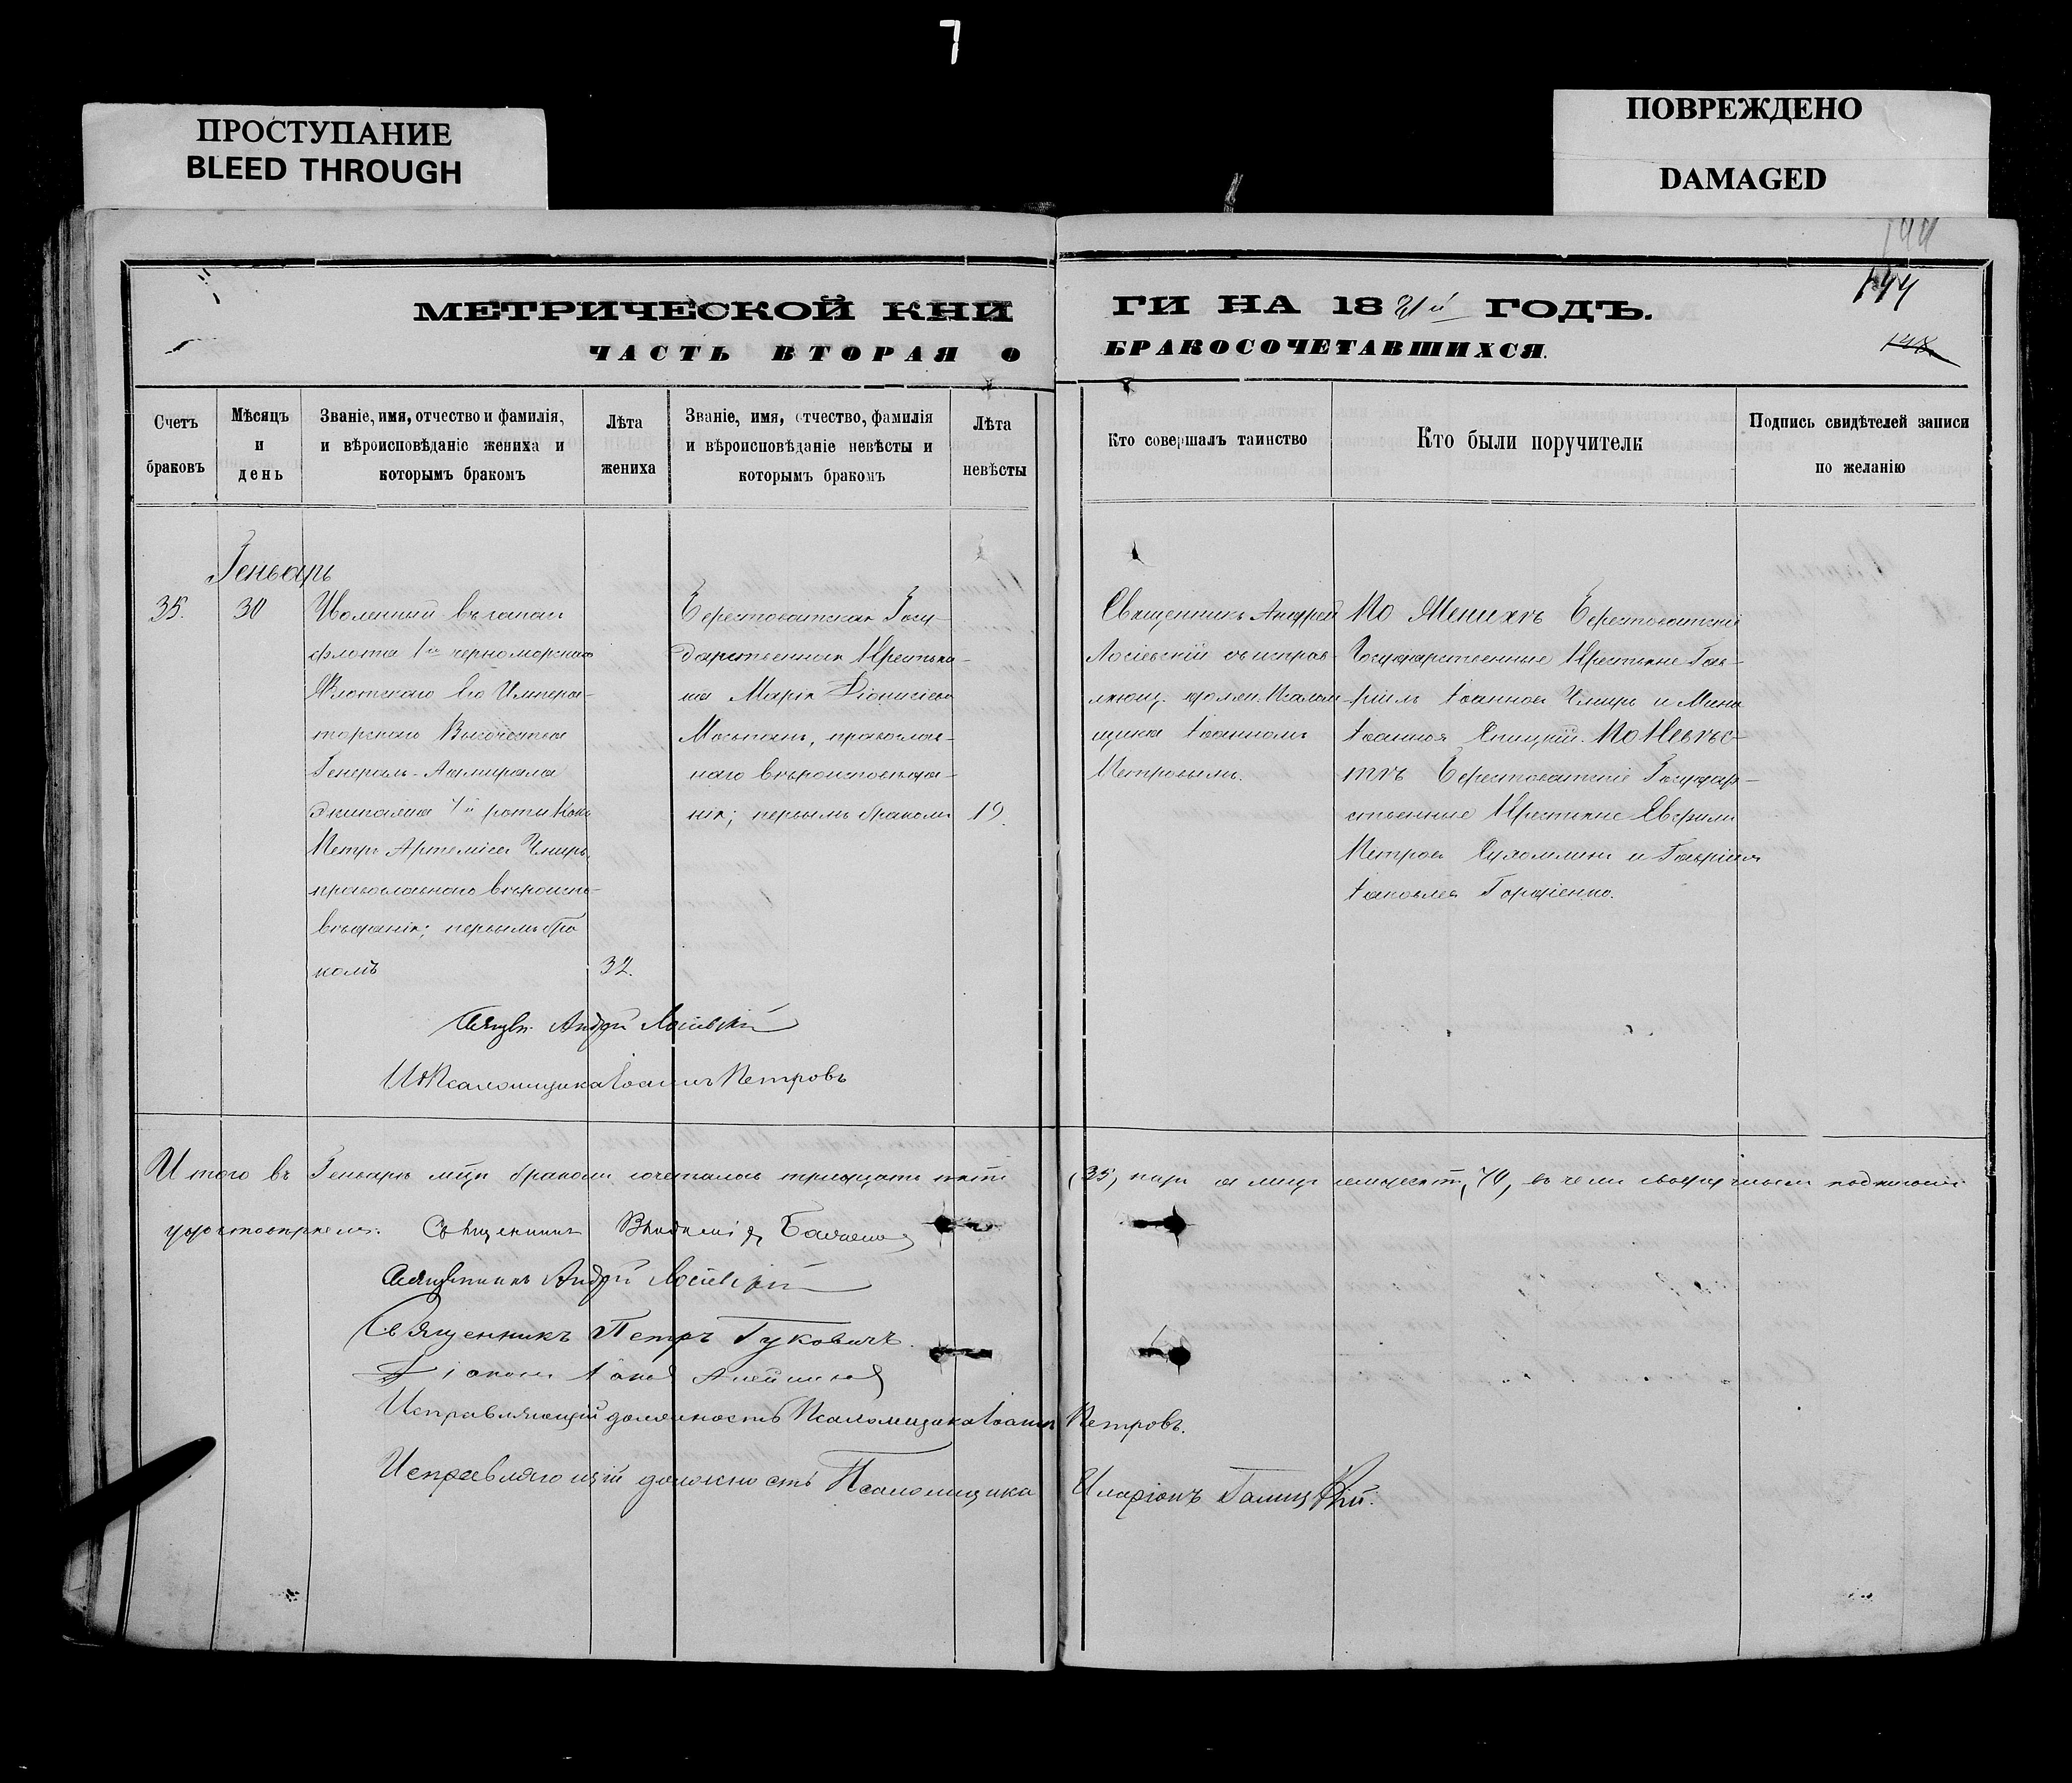 7
ПРОСТУПАНИЕ
BLEED THROUGH
ПОВРЕЖДЕНО
DAMAGED
144
МЕТРИЧЕСКОЙ КНИ
ГИ НА 18 ГОДЪ.
ЧАСТЬ ВТОРАЯ О
БРАКОСОЧЕТАВШИХСЯ.
Счетъ
браковъ
Мѣсяцъ
и
день
Званіе, имя, отчество и фамилія,
и вѣроисповѣданіе жениха и
которымъ бракомъ
Лѣта
жениха
Званіе, имя, отчество, фамилія
и вѣроисповѣданіе невѣсты и
которымъ бракомъ
Лѣта
невѣсты
Кто совершалъ таинство
Кто были поручители
Подпись свидѣтелей записи
по желанію
Геньварь
35.
30
флота 1го черноморскаго
Флотскаго Его Импера-
торскаго Высочества
Генералъ-Адмирала
экипажа роты
Петръ Артеміевъ Чмирь,
православнаго вѣроиспо-
вѣданія; первымъ бра
комъ
32.
Берестоватская Госу-
дарственная Крестьян-
ка Марія Діонисіева
православ-
наго вѣроисповѣда-
нія; первымъ бракомъ
19.
Священникъ Андрей
Лосіевскій съ исправ-
ляющ. должн. Псалом
щика Іоанномъ
Петровымъ.
По Женихѣ Берестоватскіе
Государственные Крестьяне Гав-
ріилъ Іоанновъ Чмирь и Мина
Іоанновъ По Невѣс-
тѣ Берестоватскіе Государ-
ственные Крестьяне
Петровъ Сухомлинъ и Гавріилъ
Іаковлевъ Гордіенко.
Священ. Андрей Лосіевскій
Псаломщика Іоаннъ Петровъ
Итого въ Геньварѣ мцѣ бракомъ сочеталось тридцать пять
(35) паръ а лицъ семьдесятъ, 70, въ чемъ подписомъ
удостовѣряемъ. Священникъ
Священникъ Андрей Лосіевскій
Священникъ Петръ Гуковичъ.
Исправляющій должность Псаломщика Іоаннъ Петровъ.
Исправляющій должность Псаломщика Иларіонъ